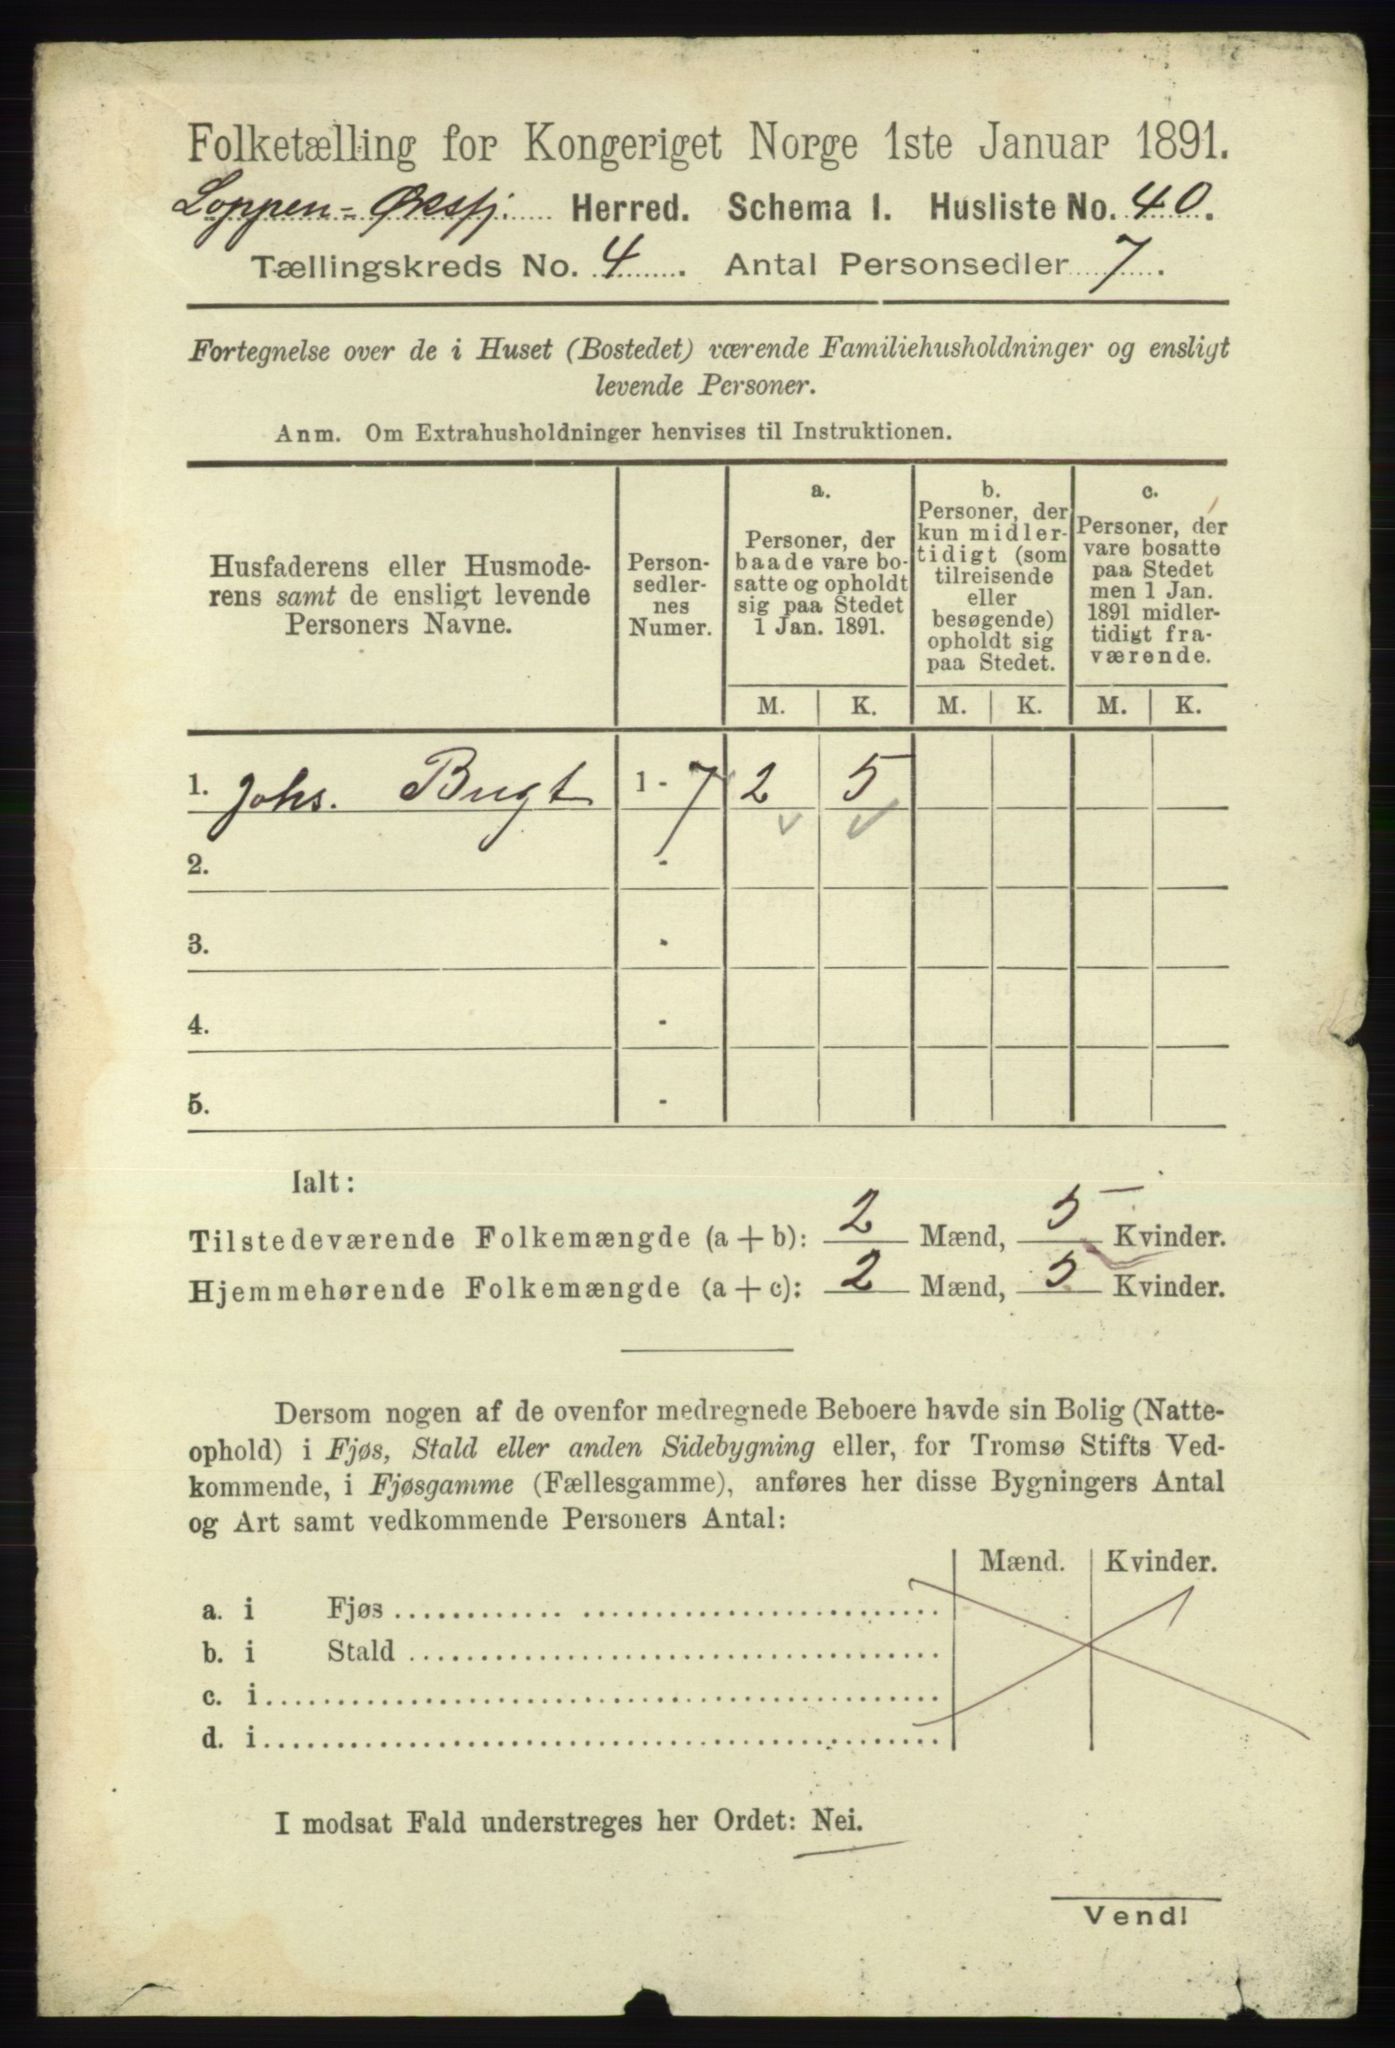 Folketælling for Kongeriget Norge 1ste Januar 1891.
Loppen-Øksfj. Herred. Schema I. Husliste No. 40.
Tællingskreds No. 4. Antal Personsedler 7.
Fortegnelse over de i Huset (Bostedet) værende Familiehusholdninger og ensligt
levende Personer.
Anm. Om Extrahusholdninger henvises til Instruktionen.
Husfaderens eller Husmode-
rens samt de ensligt levende
Personers Navne.
Person-
sedler-
nes
Numer.
a.
Personer, der
baade vare bo-
satte og opholdt
sig paa Stedet
1 Jan. 1891.
b.
Personer, der
kun midler-
tidigt (som
tilreisende
eller
besøgende)
opholdt sig
paa Stedet.
c.
Personer, der
vare bosatte
paa Stedet
men 1 Jan.
1891 midler-
tidigt fra-
værende.
M. K. M. K. M. K.
1. Johs. Bugt 1 - 7 2 5
2. -
3. -
4. -
5. -
Ialt:
Tilstedeværende Folkemængde (a + b): 2 Mænd, 5 Kvinder.
Hjemmehørende Folkemængde (a + c): 2 Mænd, 5 Kvinder.
Dersom nogen af de ovenfor medregnede Beboere havde sin Bolig (Natte-
ophold) i Fjøs, Stald eller anden Sidebygning eller, for Tromsø Stifts Ved-
kommende, i Fjøsgamme (Fællesgamme), anføres her disse Bygningers Antal
og Art samt vedkommende Personers Antal:
Mænd. Kvinder.
a. i Fjøs
b. i Stald
c. i
d. i
I modsat Fald understreges her Ordet: Nei.
Vend!